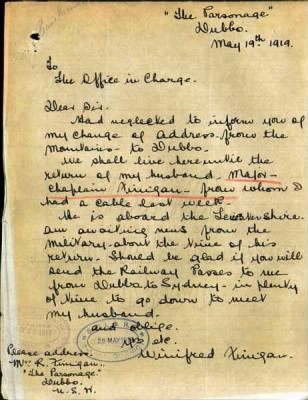 "The Parsonage"
Dubbo.
May 19th 1919.
To
The Office in Charge.
Dear Sir.
Had neglected to inform you of
my change of address. from the
Mountains - to Dubbo.
We shall live here until the
return of my husband. Major-
Chaplain Finigan - from whom I
had a cable last week.
He is aboard the
am awaiting news from the
military - about the time of his
return. Should be glad if you will
send the Railway Passes to me
from Dubbo to Sydney - in plenty
of time to go down to meet
my husband.
and oblige.
yrs etc.
Winifred Finigan.
Please address.
Mrs R. Finigan.
"The Parsonage"
Dubbo.
N.S.W.
20 MAY 19